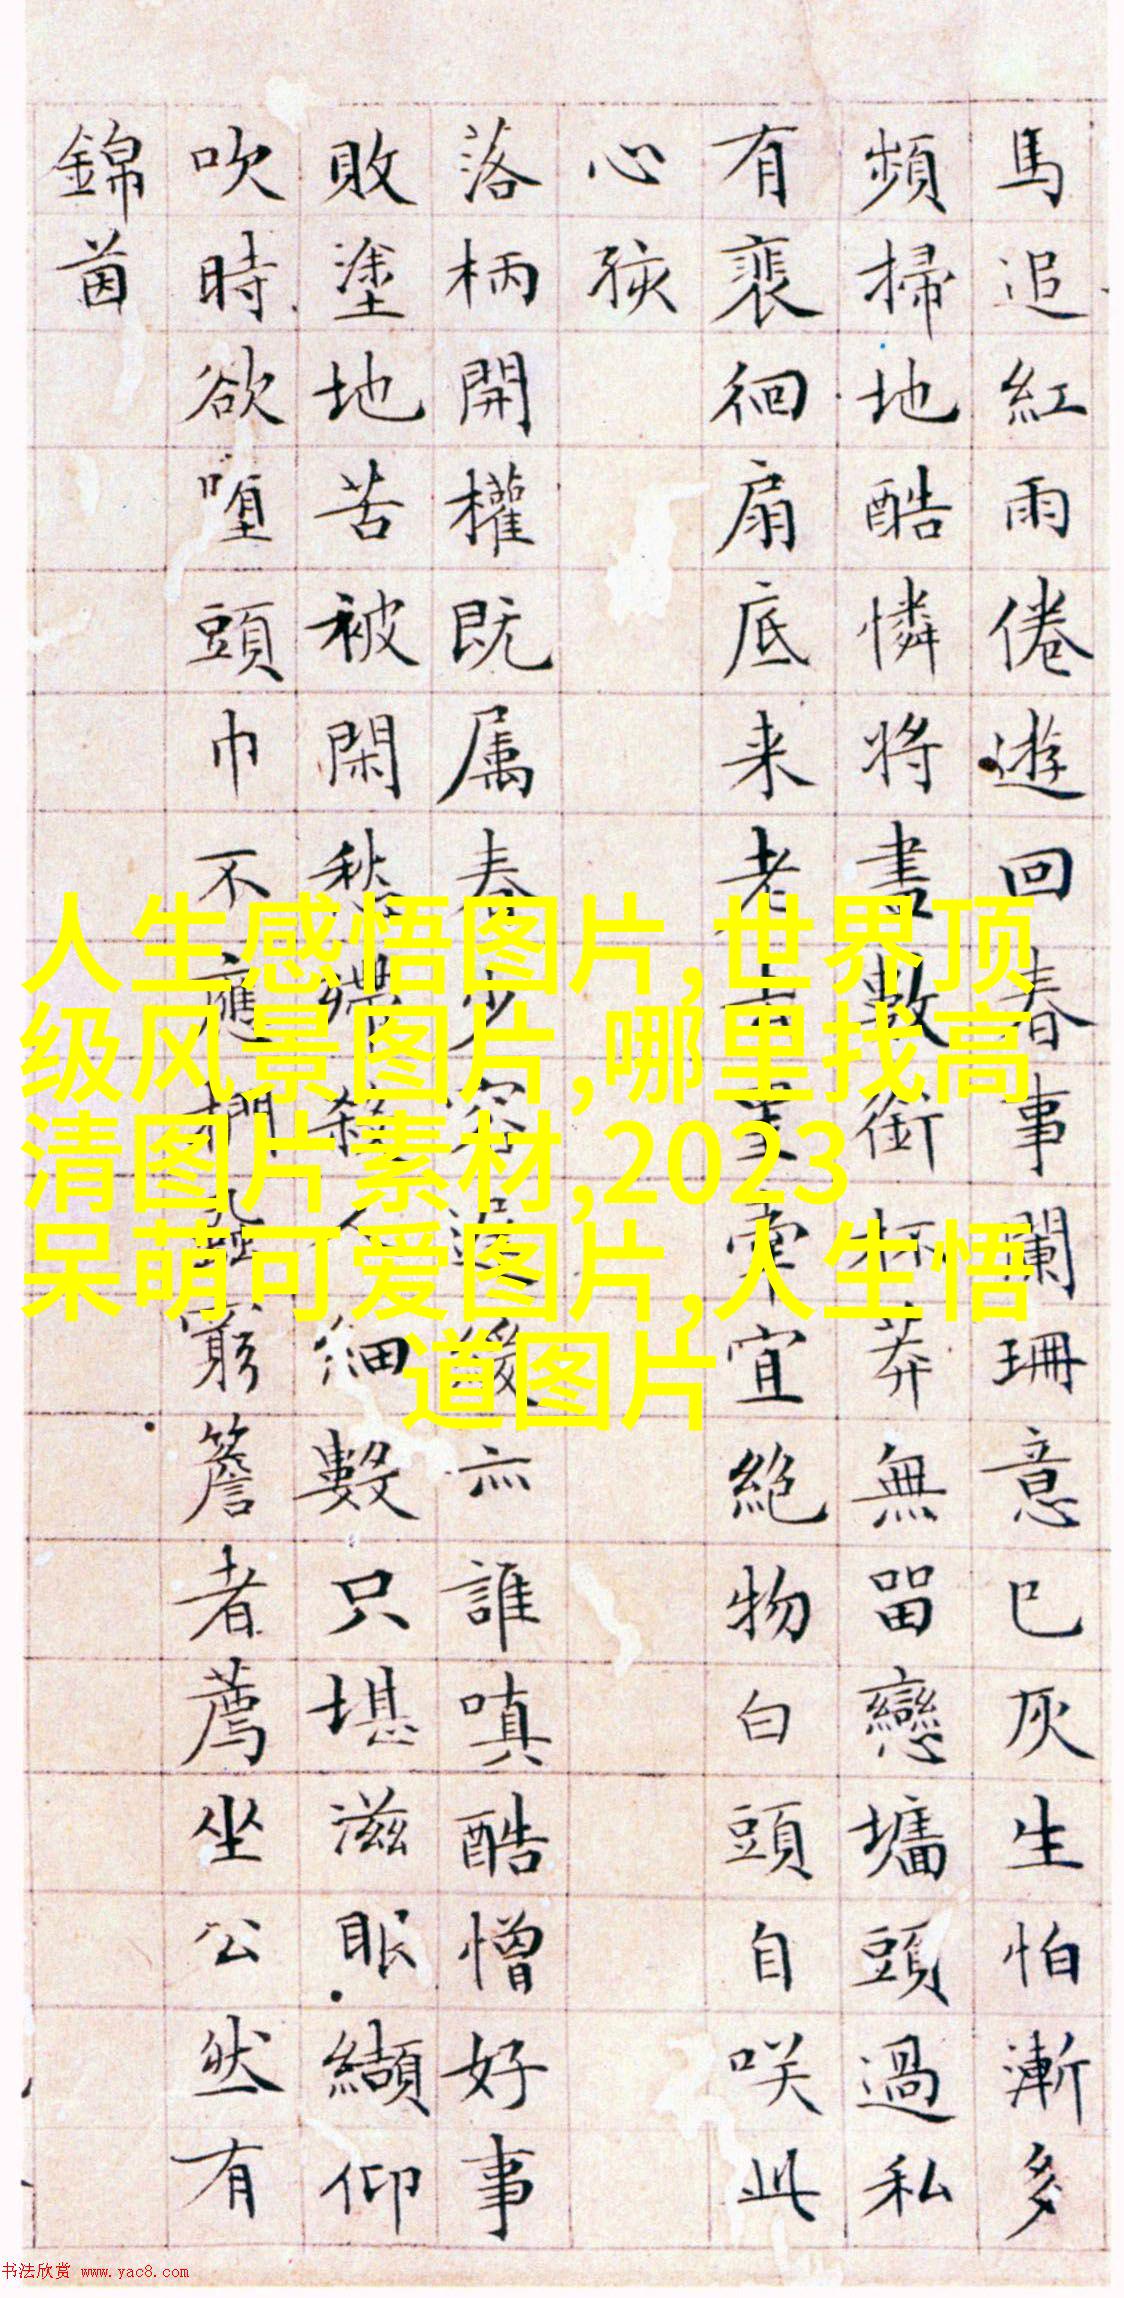 馬追紅雨倦遊回春事闌珊意已灰生怕漸多
頻掃地酷憐將書數銜杯莽無留戀墻頭過私
有裴徊扇底来老去里棄宜絶物白頭自咲此
心孩
落柄開權既属春少容遲緩亦誰嗔酷憎好事
敗塗地苦被閑愁殺人細數只堪滋眼纈仰
吹時欲墮頭巾不應捫虱窮簷者薦坐公然有
錦茵
人生感悟图片,世界顶
级风景图片,哪里找高
清图片素材,2023
呆萌可爱图片,人生悟
道图片
书法欣赏 www.yac8.com